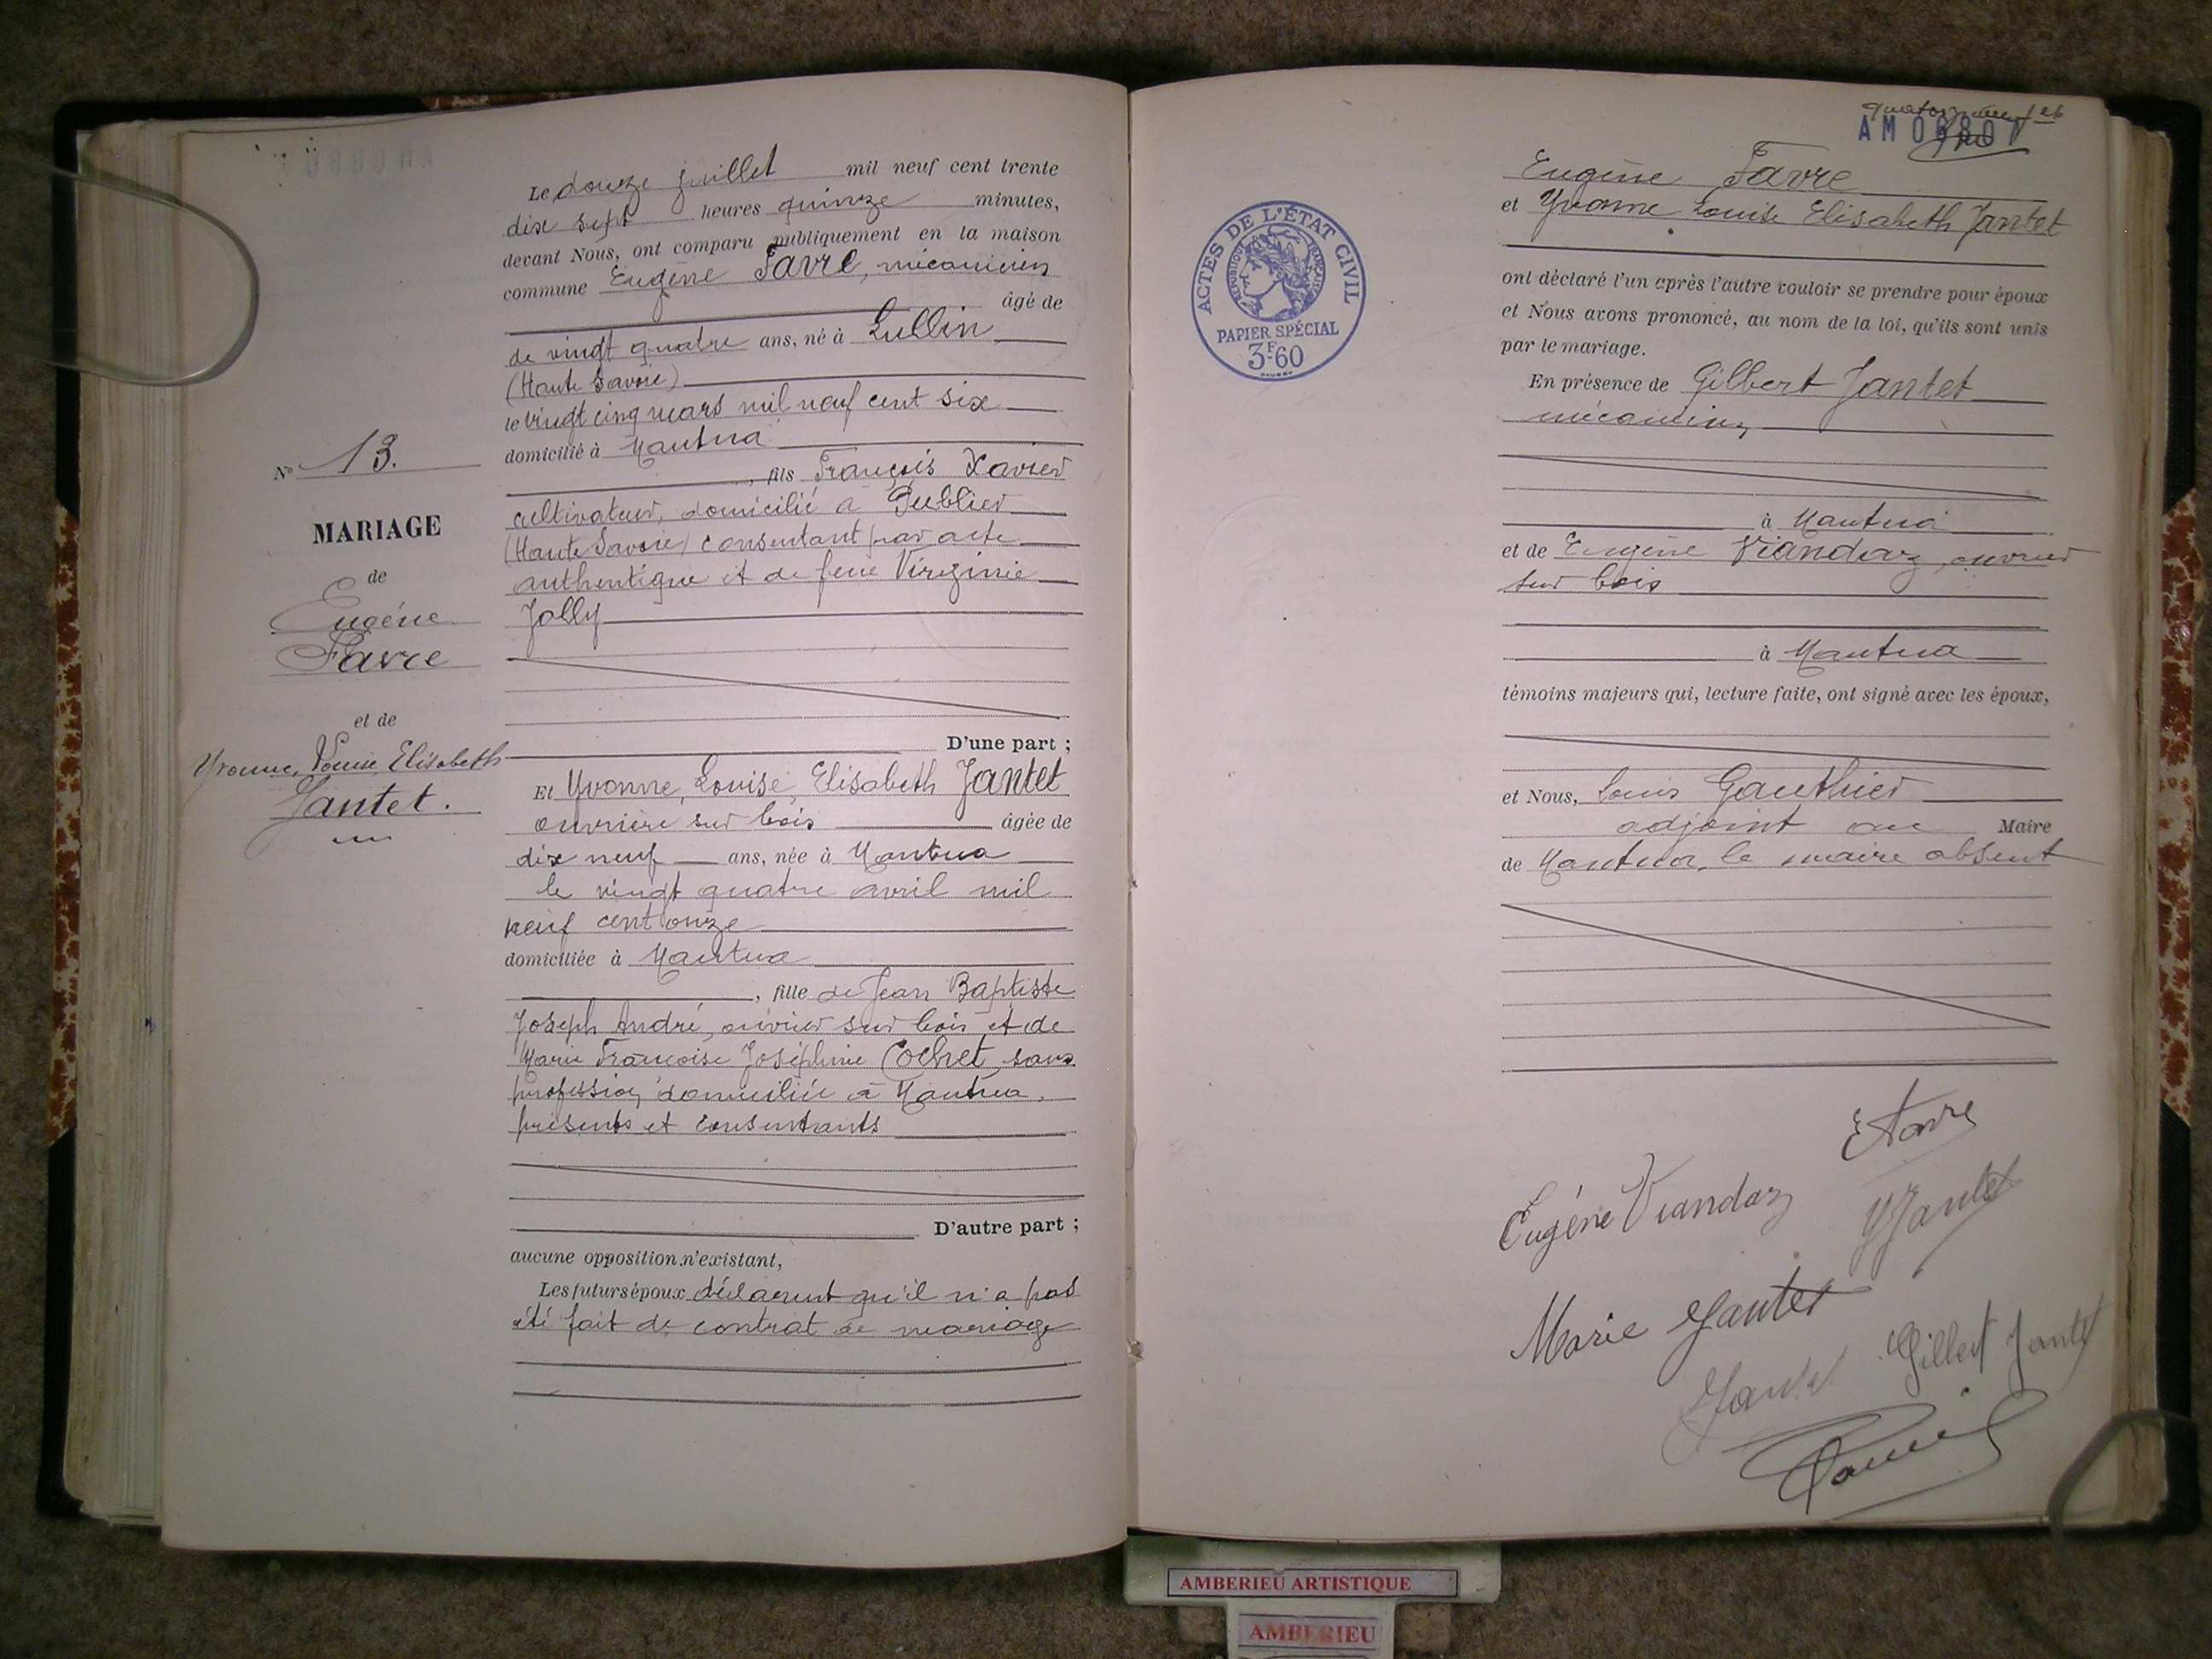 Le douze juillet mil neuf cent trente
dix sept heures quinze minutes,
devant Nous, ont comparu publiquement en la maison
commune Eugène Favre, mécanicien
âgé de
de vingt quatre ans, né à Lullin
(Haute Savoie)
le vingt cinq mars mil neuf cent six
domicilié à Nantua
, fils François Xavier
cultivateur, domicilié à Publier
(Haute Savoie) consentant par acte
authentique et de feue Virginie
Jolly
D'une part ;
Et Yvonne, Louise, Elisabeth Jantet
ouvrière sur bois âgée de
dix neuf ans, née à Nantua
le vingt quatre avril mil
neuf cent onze
domiciliée à Nantua
, fille de Jean Baptiste
Joseph André, ouvrier sur bois et de
Marie Françoise Joséphine Cochet, sans
profession, domiciliés à Nantua,
présents et consentants
D'autre part ;
aucune opposition n'existant,
Les futurs époux déclarent qu'il n'a pas
été fait de contrat de mariage
N° 13.
MARIAGE
de
Eugène
Favre
et de
Yvonne, Louise, Elisabeth
Jantet.
ACTES DE L'ÉTAT CIVIL
RÉPUBLIQUE FRANÇAISE
PAPIER SPÉCIAL
3F-60
Eugène Favre
et Yvonne Louise Elisabeth Jantet
ont déclaré l'un après l'autre vouloir se prendre pour époux
et Nous avons prononcé, au nom de la loi, qu'ils sont unis
par le mariage.
En présence de Gilbert Jantet
mécanicien
à Nantua
et de Eugène Viandaz, ouvrier
sur bois
à Nantua
témoins majeurs qui, lecture faite, ont signé avec les époux,
et Nous, Louis Gauthier
adjoint au Maire
de Nantua, le maire absent
E Favre
Eugène Viandaz
Y Jantet
Marie Jantet
Gilbert Jantet
Jantet
AMBERIEU ARTISTIQUE
AMBERIEU